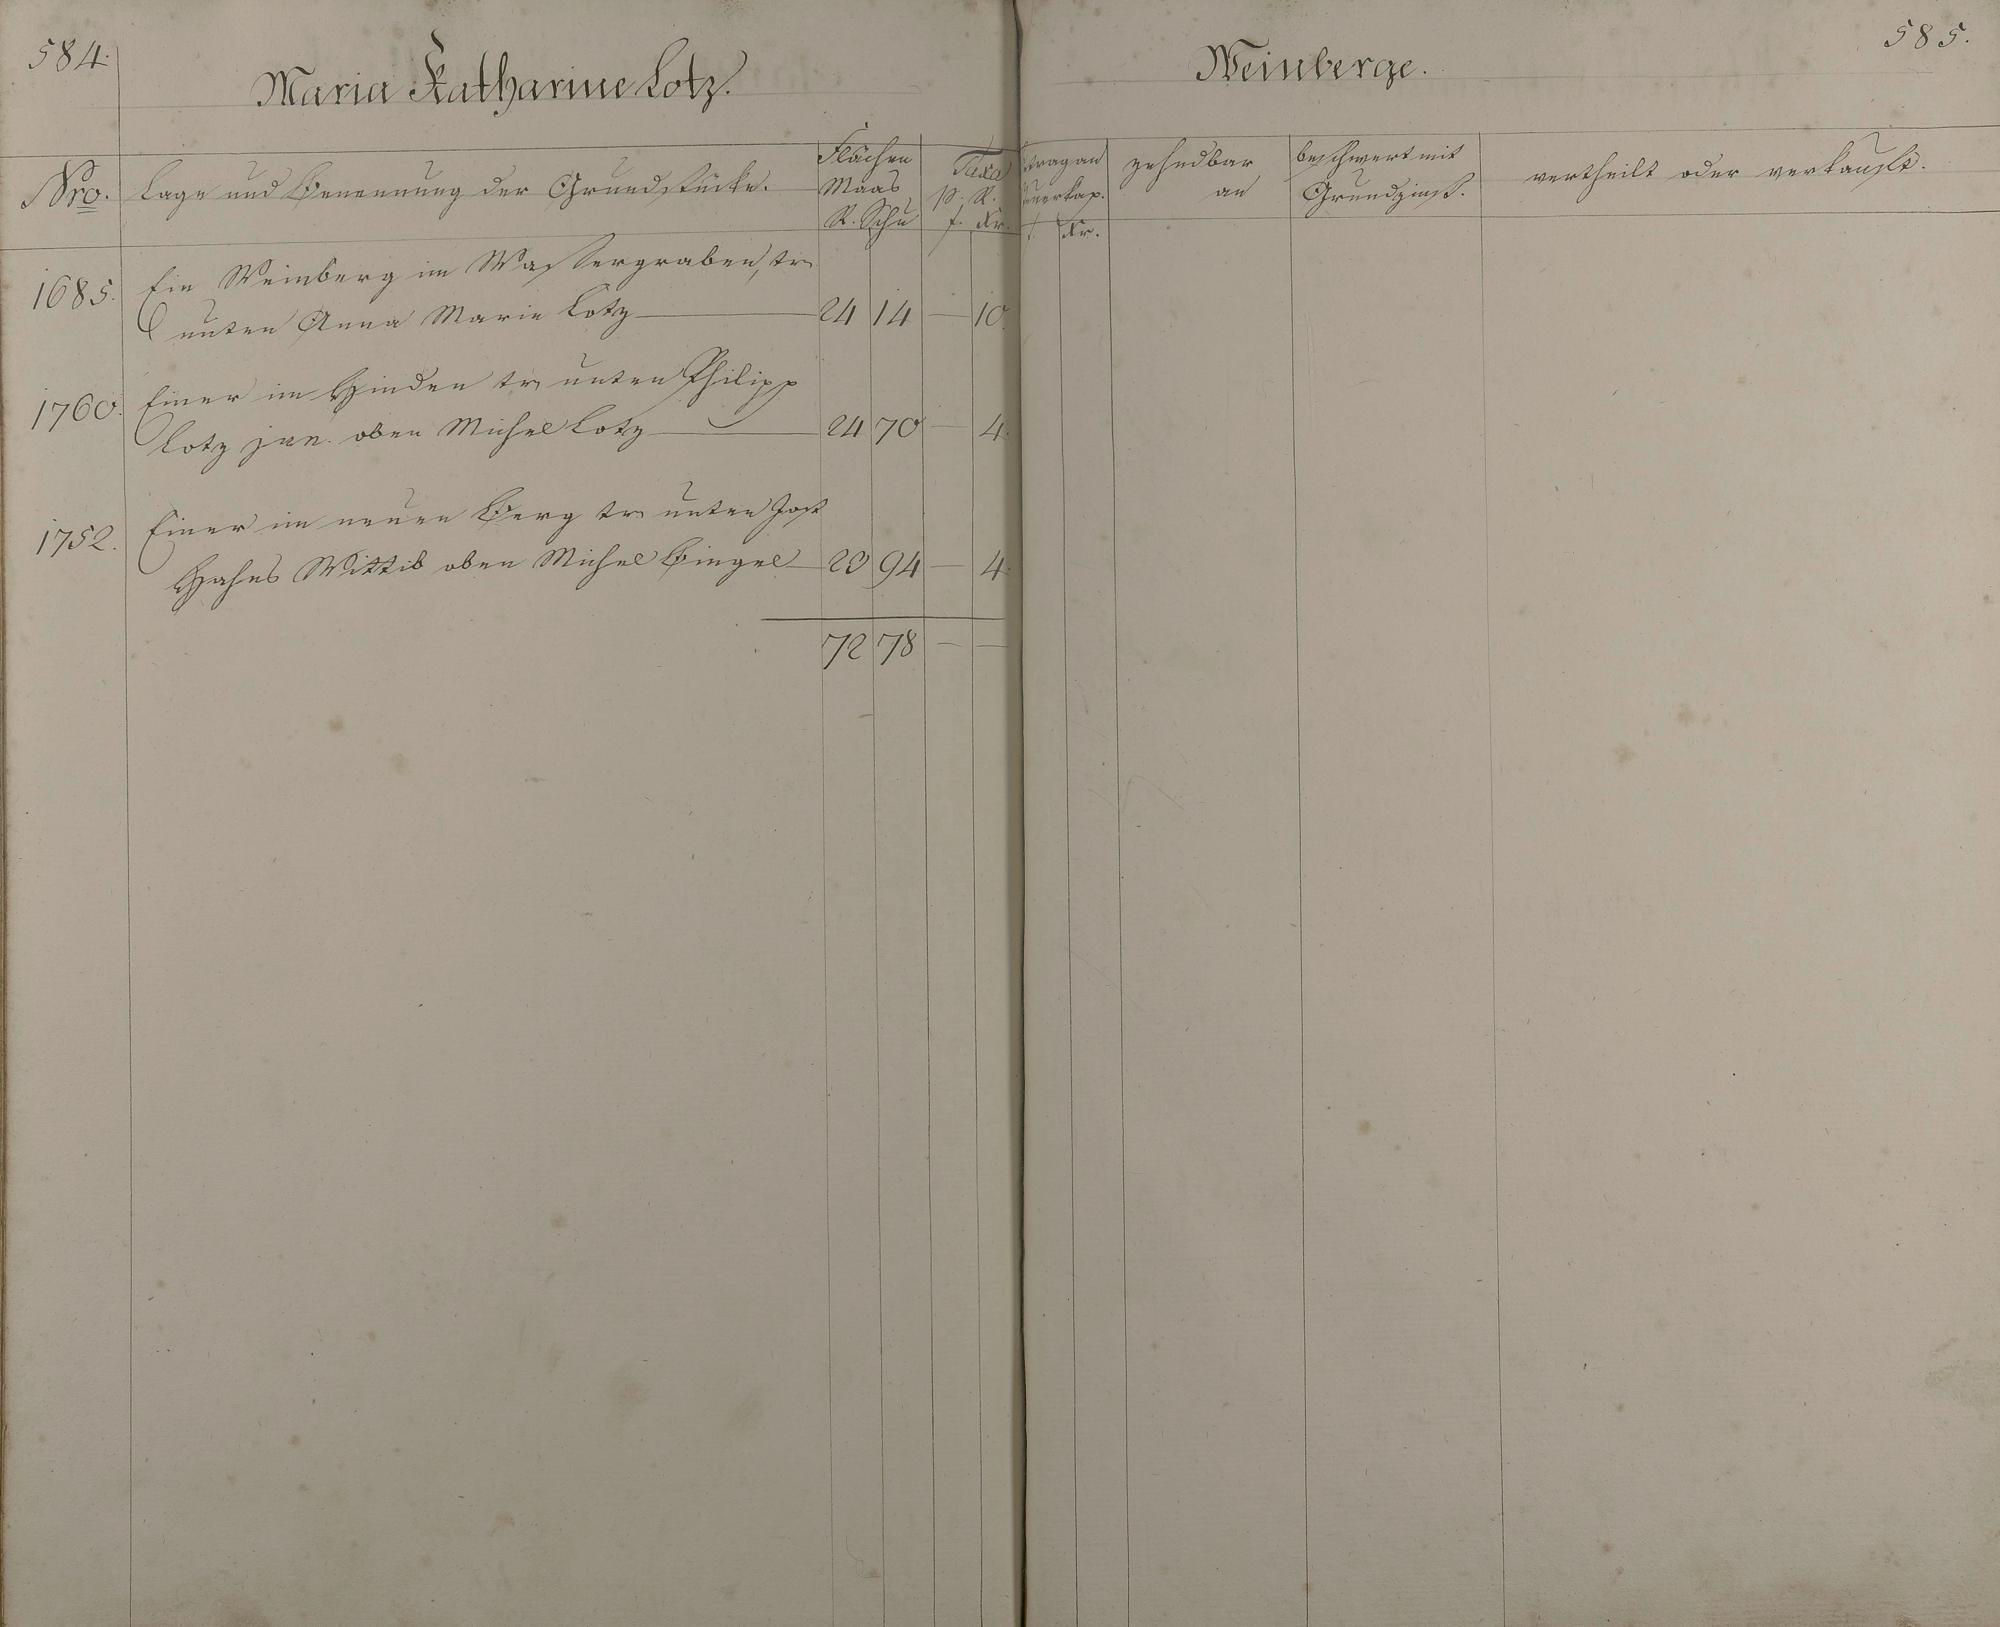 584.
Maria Katharine Lotz.
Nro.
Lage und Benennung der Grundstücke.
Flächen
Maas
R. Schu
Taxa
p. R.
f. Kr.
1685. Ein Weinberg im Wassergraben, tr
unten Anna Marie Lotz 24 14 — 10.
1760. Einer im Hinden tr unten Philipp
Lotz jun. oben Michel Lotz 24 70 — 4.
1752. Einer im neuen Berg tr unten Jost
Hahns Wittib oben Michel Bingel 23 94 — 4.
72 78 — —
585.
Weinberge.
trag an
uerkap.
f. Kr.
zehndbar
an
beschwert mit
Grundzinß.
vertheilt oder verkauft.